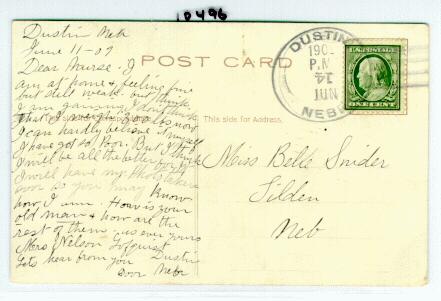 10496
Dustin Neb
June 11-09
Dear Nurse. I
am at home & feeling fine
but still weak but think
I am gaining, I don't think
that I weigh 80 lbs now
I can hardly believe it myself
I have got so Poor. But I think
I will be all the better for it
I will have my Photo taken
soon so you may know
how I am. How is your
old man & how are the
rest of them. as ever yours
Mrs Nelson Lofquist
Lets hear from you Dustin
soon Nebr
POST CARD
This side for Address.
DUSTING
190
P.M
14
JUN
NEB
U.S. POSTAGE
ONE CENT
Miss Belle Snider
Tilden
Neb